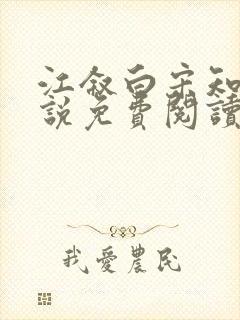 江叙白宋知
說免費閱讀
我愛農民